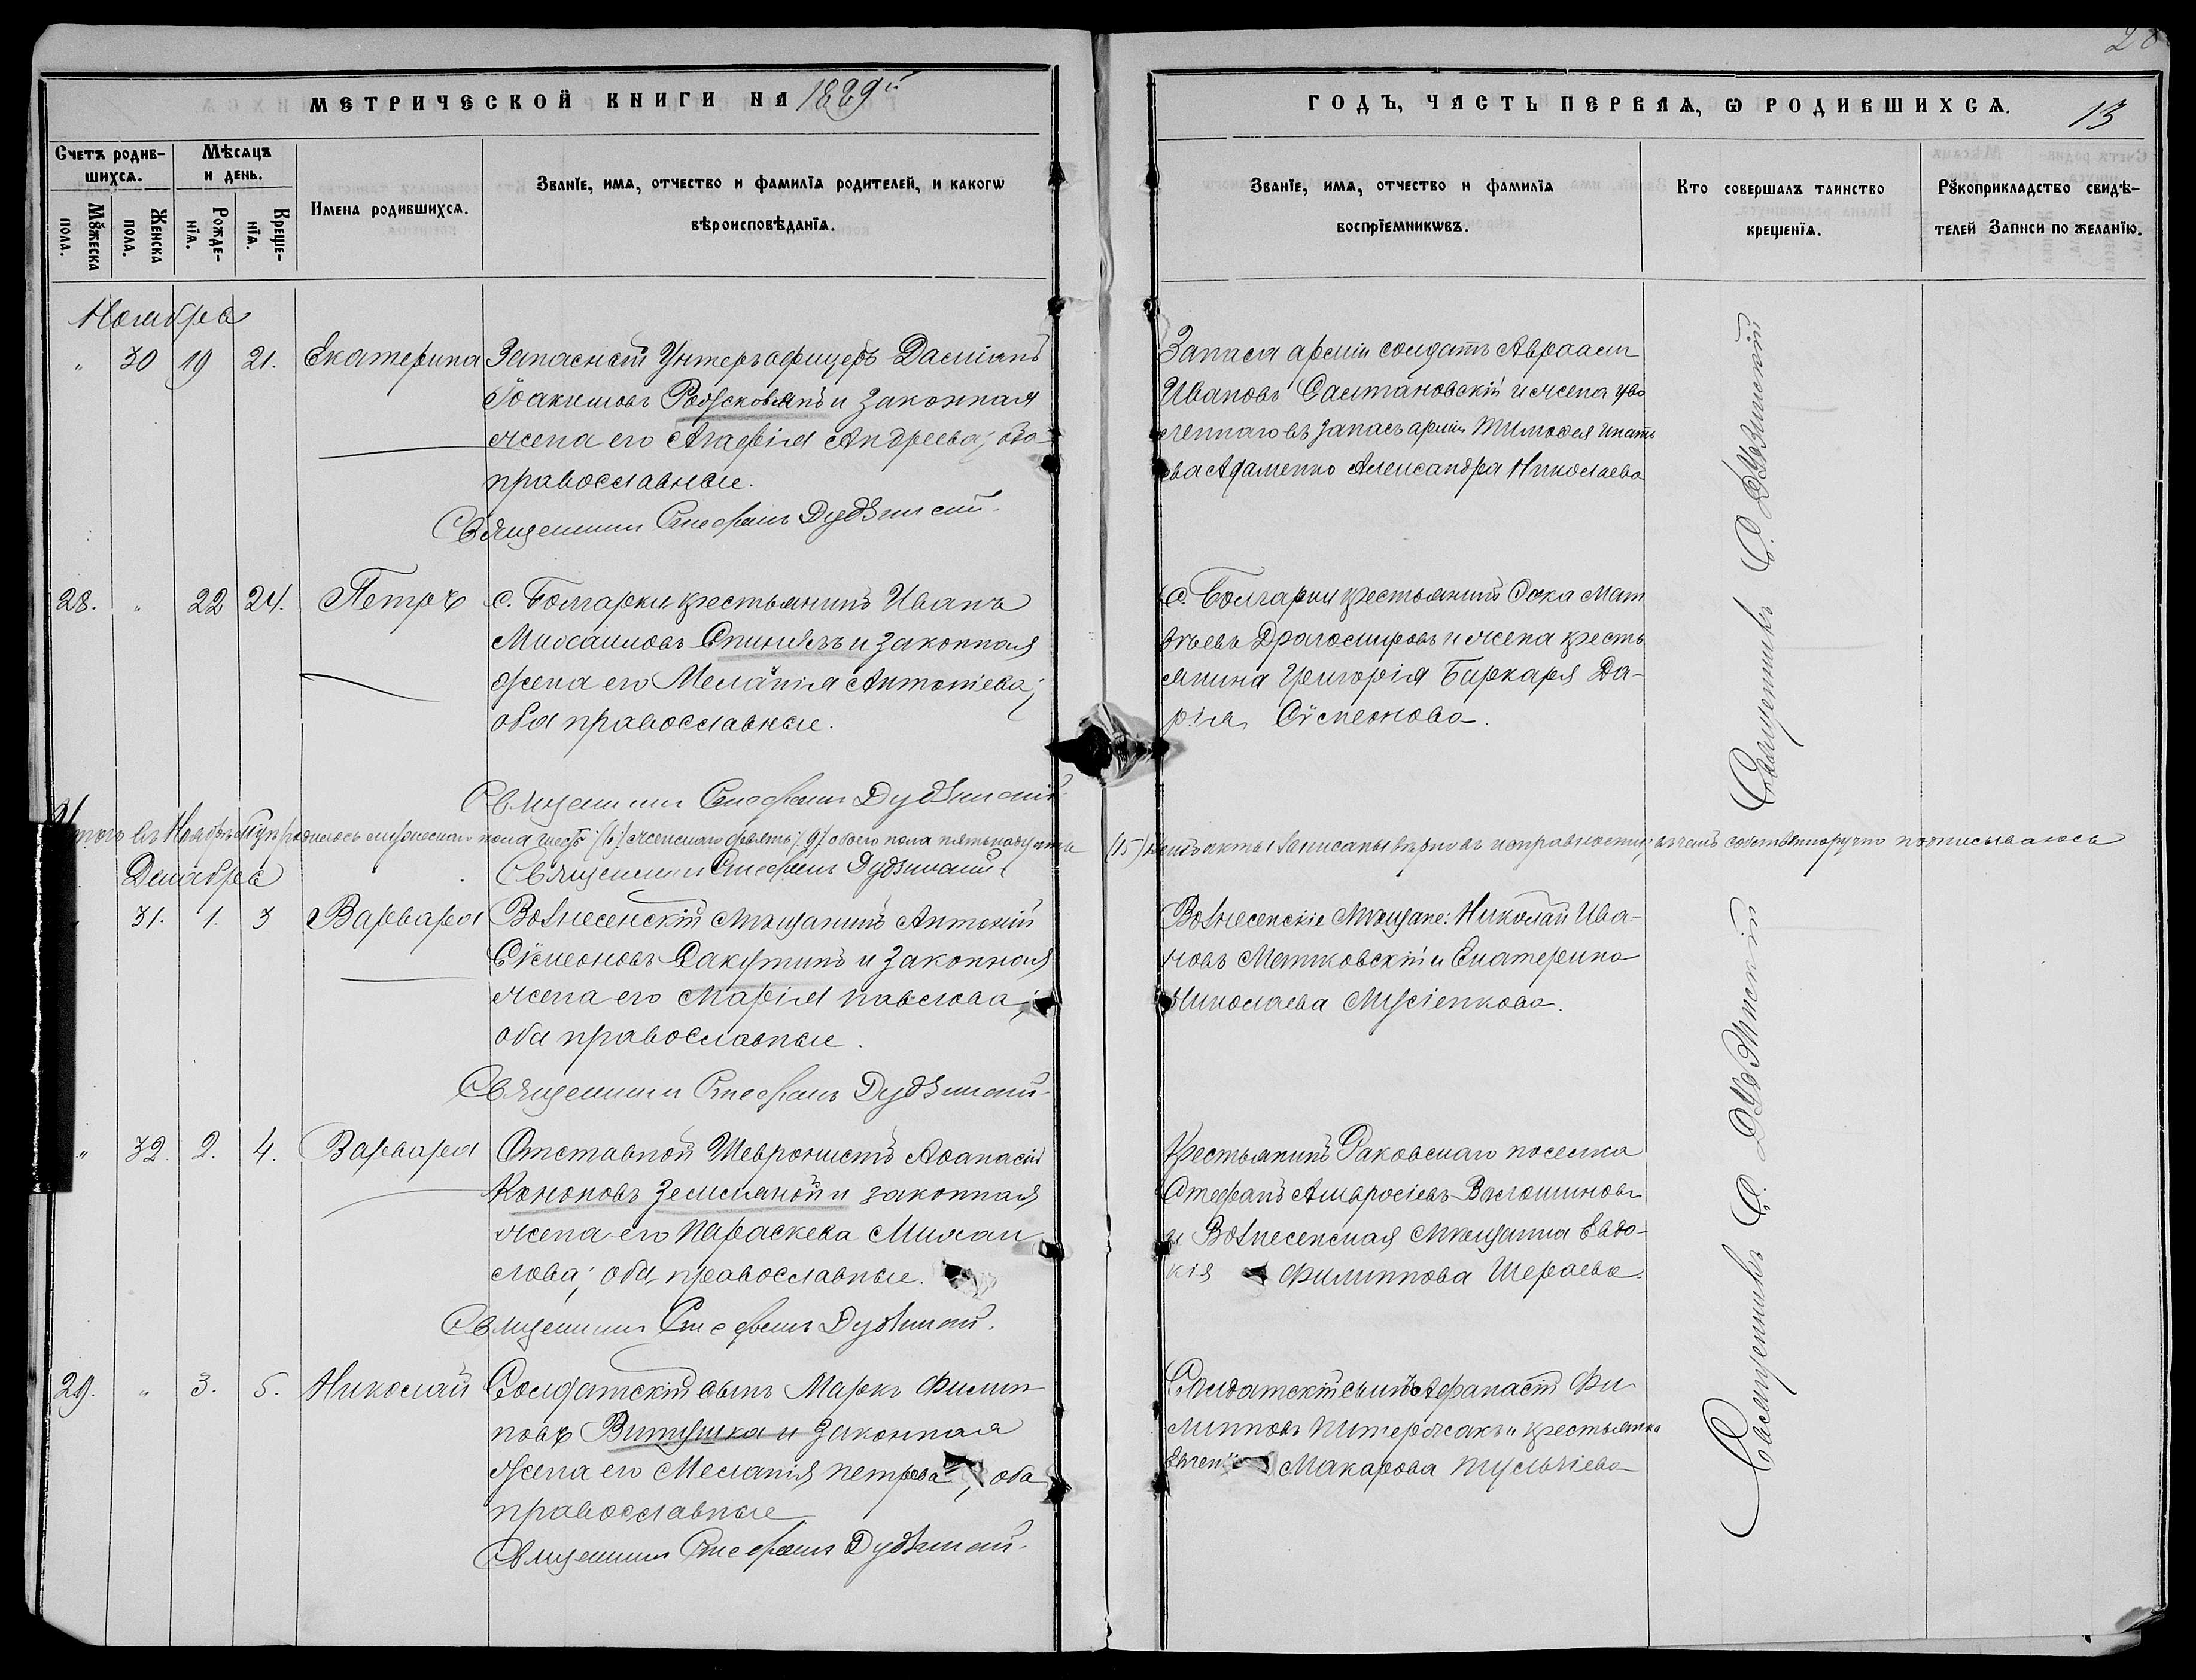 28
МЕТРИЧЕСКОЙ КНИГИ НА 1889й
ГОДЪ, ЧАСТЬ ПЕРВАЯ, Ѡ РОДИВШИХСѦ.
13
Счетъ родив-
шихсѧ.
Мѣсѧцъ
и день.
Мꙋжеска
пола.
Женска
пола.
Рожде-
нїѧ.
Креще-
нїѧ.
Имена родившихсѧ.
Званїе, имѧ, отчество и фамилїѧ родителей, и какогѡ
вѣроисповѣданїѧ.
Званїе, имѧ, отчество и фамилїѧ
воспрїемникѡвъ.
Кто совершалъ таинство
крещенїѧ.
Рꙋкоприкладство свидѣ-
телей записи по желанїю.
Ноября
" 30 19 21. Екатерина
Запасный Унтеръ офицеръ Даміанъ
Іоакимовъ и законная
жена его Агафія Андреева; оба
православные.
Священникъ Стефанъ Дудзинскій
Запаса арміи солдатъ Авраам
Ивановъ Салтановскій и жена уво
леннаго въ запасъ арміи Тимофея Игнать
ева Адаменко Александра Николаева
28. " 22 24. Петръ
с. Болгарки крестьянинъ Иванъ
Михаиловъ и законная
жена его Меланія Антоніева;
оба православные.
Священникъ Стефанъ Дудзинскій
с. Болгарки крестьянинъ Сава Мат
вѣевъ Драгомировъ и жена кресть
янина Григорія Баркаря Да-
рія Сѵмеонова.
Священникъ С. Дудзинскій
Итого въ Ноябрѣ м-цѣ родилось мужескаго пола шесть /6/, женскаго девять /9/ обоего пола пятьнадцать (15) акты записаны вѣрно въ исправности, въ чемъ собственноручно подписываюсь
Священникъ Стефанъ Дудзинскій
Декабря
31. 1. 3 Варвара
Вознесенскій Мѣщанинъ Антоній
Сѵмеоновъ Сакутинъ и законная
жена его Марія Павлова;
оба православные.
Священникъ Стефанъ Дудзинскій
Вознесенскіе Мѣщане: Николай Ива-
новъ Матковскій и Екатерина
Николаева Мусіенкова.
" 32. 2. 4. Варвара
Отставной Шевронистъ Аѳанасій
Кононовъ Земляной и законная
жена его Параскева Михаи
лова; оба православные.
Священникъ Стефанъ Дудзинскій.
Крестьянинъ Раковскаго поселка
Стефанъ Амвросіевъ Волошиновъ
и Вознесенская Мѣщанка Евдо-
кія Филиппова Шераева.
29. " 3. 5. Николай
Солдатскій сынъ Маркъ Филип
повъ Витушка и законная
жена его Меланія Петрова, оба
православные
Священникъ Стефанъ Дудзинскій.
Солдатскій сынъ Афанасій Фи
липповъ и крестьянка
Евгенія Макарова
Священникъ С. Дудзинскій